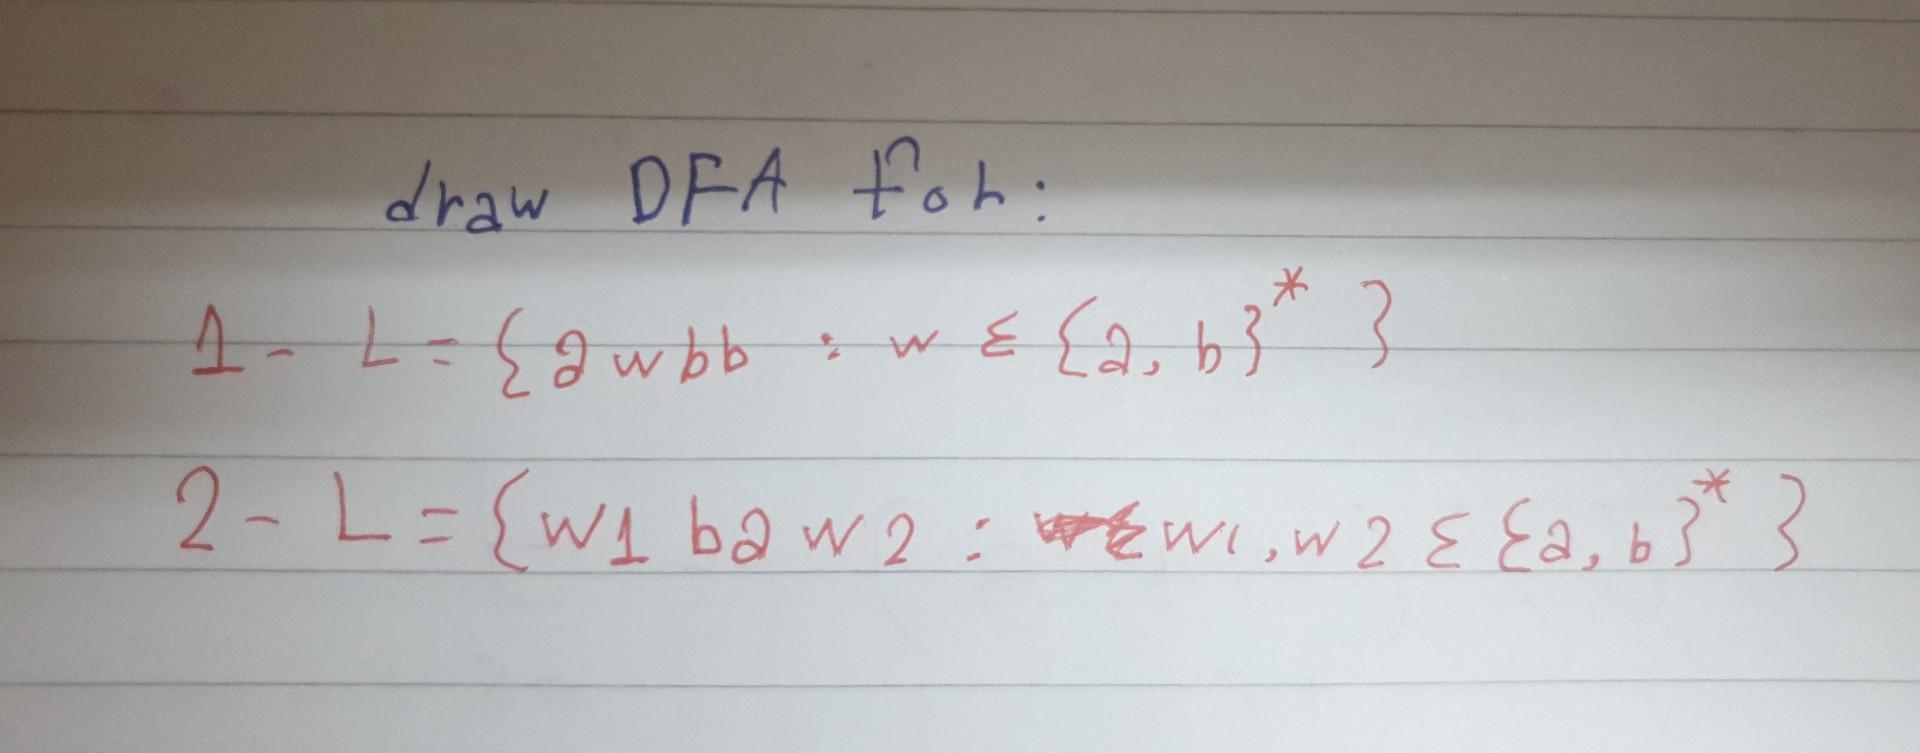 draw DFA for:
1- L = {awbb : w ε {a, b}* }
2- L = {w1 ba w2 : w1, w2 ε {a, b}* }